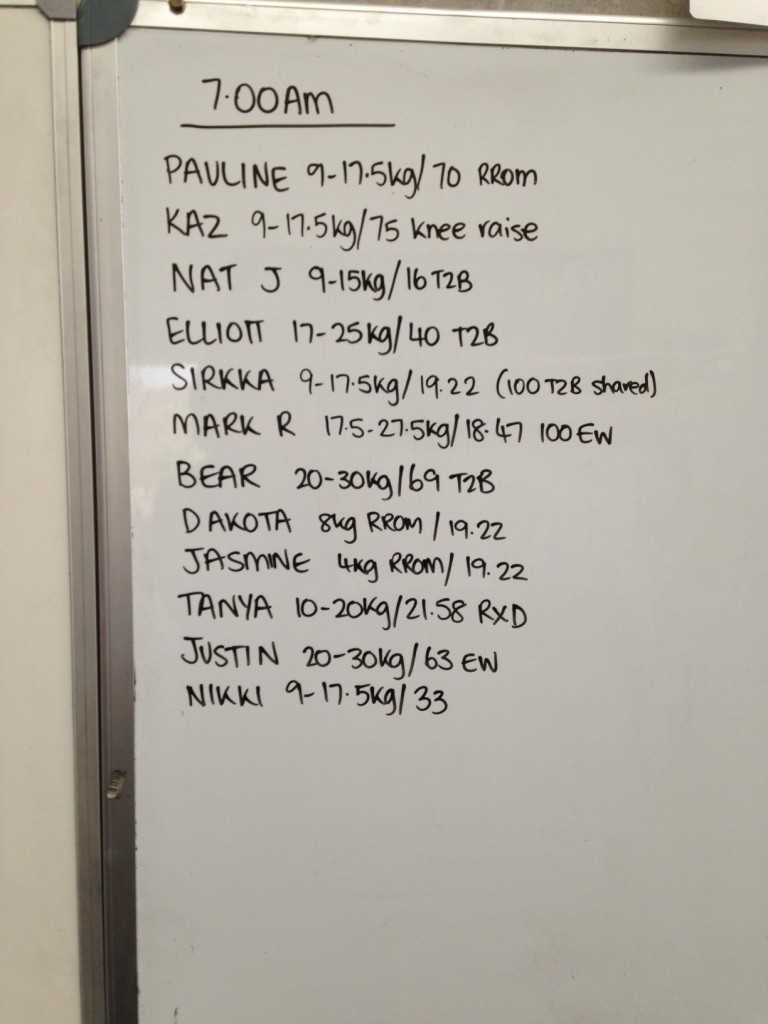 7.00Am
PAULINE 9-17.5kg/70 RROM
KAZ 9-17.5kg/75 knee raise
NAT J 9-15kg/16 T2B
ELLIOTT 17-25kg/40 T2B
SIRKKA 9-17.5kg/19.22 (100 T2B shared)
MARK R 17.5-27.5kg/18.47 100 EW
BEAR 20-30kg/69 T2B
DAKOTA 8kg RROM/19.22
JASMINE 4kg RROM/19.22
TANYA 10-20kg/21.58 RXD
JUSTIN 20-30kg/63 EW
NIKKI 9-17.5kg/33